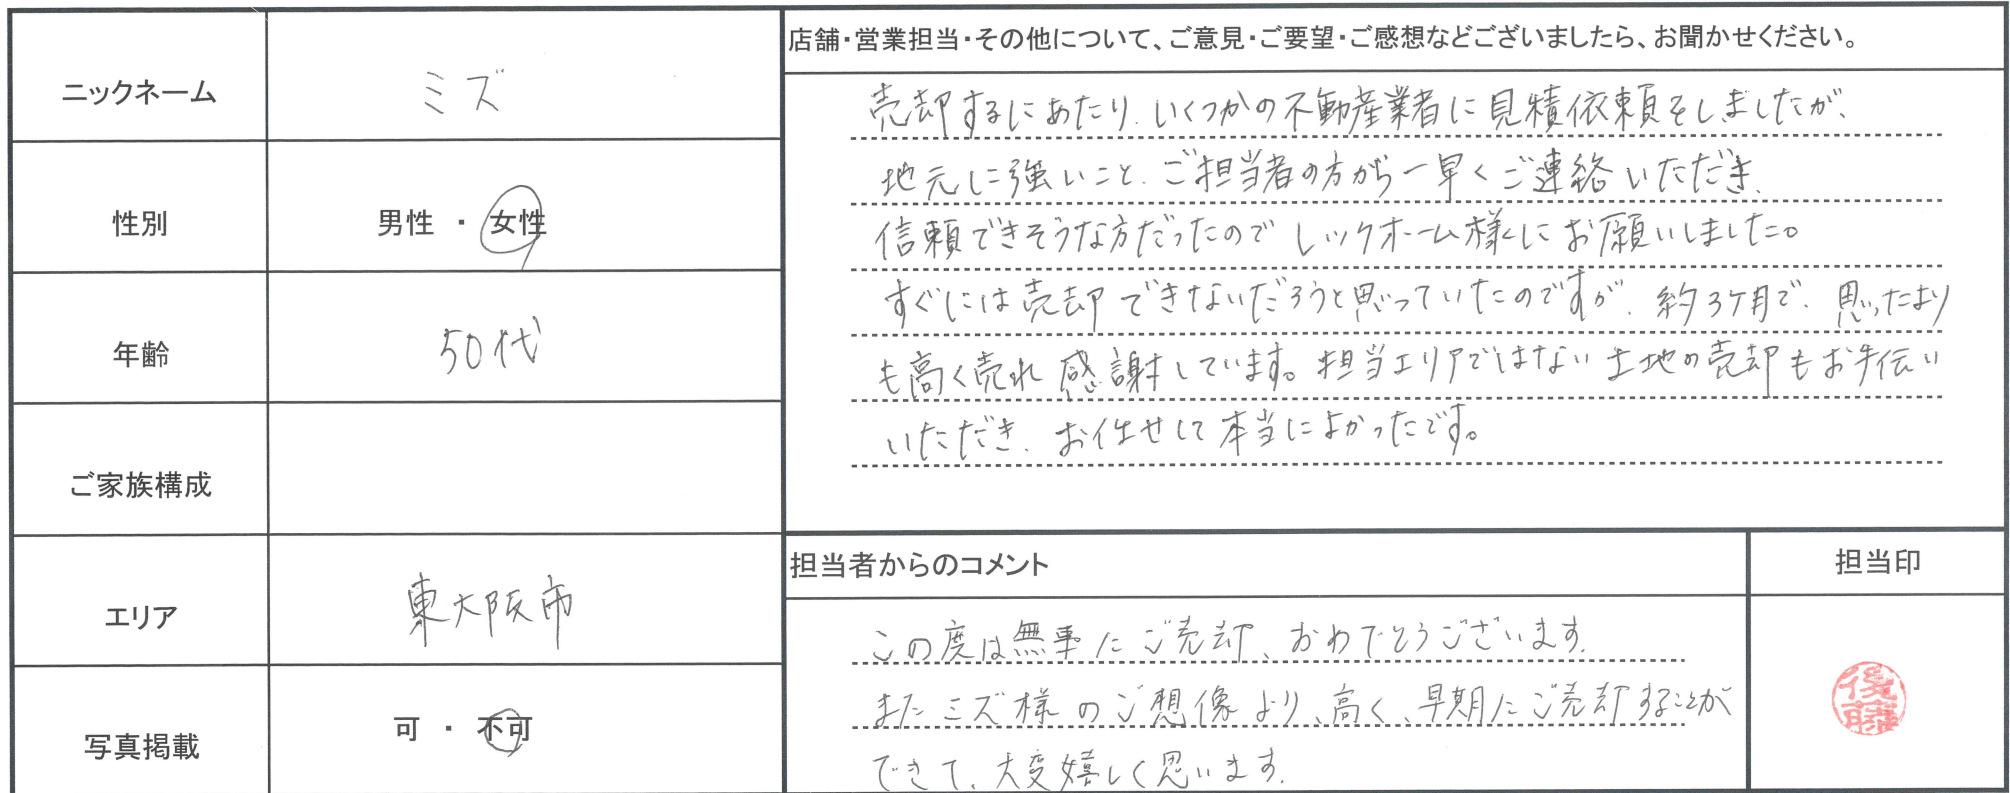 ニックネーム
ミズ
性別
男性 ・ 女性
年齢
50代
ご家族構成
エリア
東大阪市
写真掲載
可 ・ 不可
店舗・営業担当・その他について、ご意見・ご要望・ご感想などございましたら、お聞かせください。
売却するにあたり、いくつかの不動産業者に見積依頼をしましたが、
地元に強いこと、ご担当者の方から一早くご連絡いただき、
信頼できそうな方だったのでレックホーム様にお願いしました。
すぐには売却できないだろうと思っていたのですが、約3ケ月で、思ったより
も高く売れ感謝しています。担当エリアではない土地の売却もお手伝い
いただき、お任せして本当によかったです。
担当者からのコメント
この度は無事にご売却、おめでとうございます。
またミズ様のご想像より、高く、早期にご売却することが
できて、大変嬉しく思います。
担当印
後藤